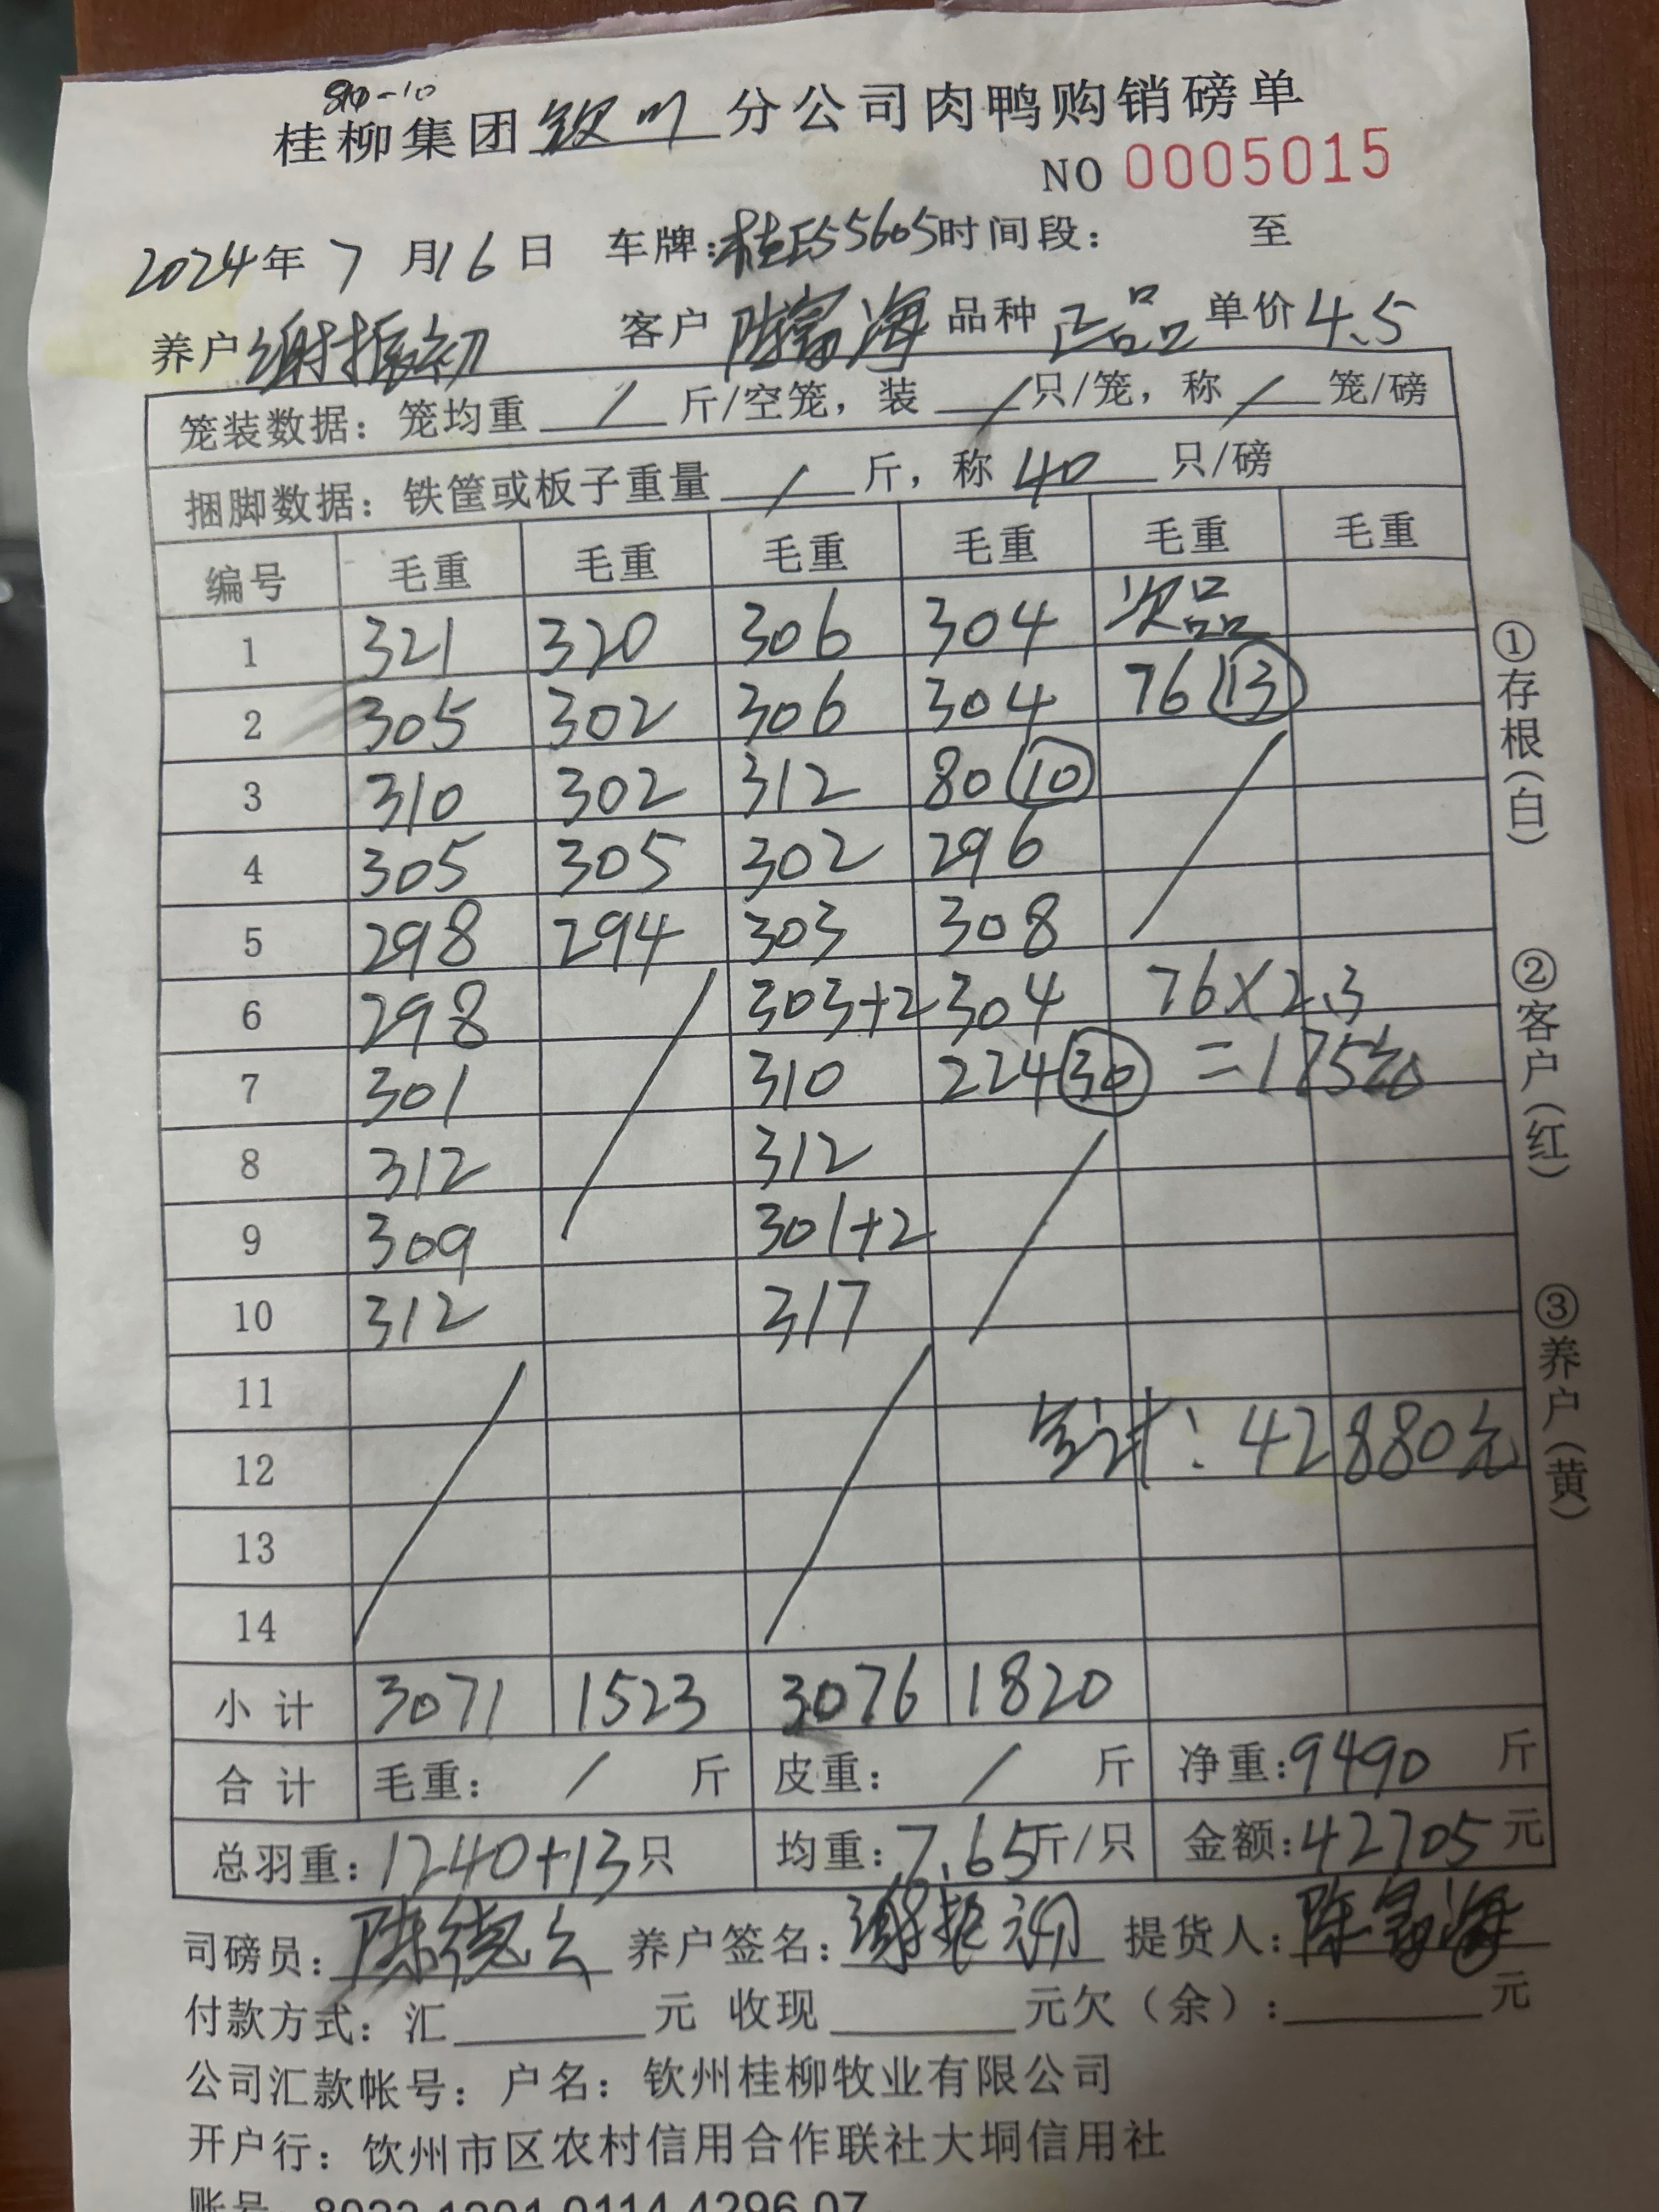 桂柳集团钦州分公司肉鸭购销磅单
NO 0005015
2024年7月16日 车牌: 5605时间段: 至
养户谢振初 客户陈富海 品种正品 单价4.5
笼装数据: 笼均重 / 斤/空笼, 装 / 只/笼, 称 / 笼/磅
捆脚数据: 铁筐或板子重量 / 斤, 称 40 只/磅
编号 毛重 毛重 毛重 毛重 毛重 毛重
1 321 320 306 304 次品
2 305 302 306 304 76 13
3 310 302 312 80 10
4 305 305 302 296
5 298 294 303 308
6 298 303+2 304 76×2.3
7 301 310 224 30 =175元
8 312 312
9 309 301+2
10 312 317
11
12 合计: 42880元
13
14
小计 3071 1523 3076 1820
合计 毛重: / 斤 皮重: / 斤 净重: 9490 斤
总羽重: 1240+13只 均重: 7.65斤/只 金额: 42705元
司磅员: 养户签名: 谢振初 提货人: 陈富海
付款方式: 汇 元 收现 元欠(余): 元
公司汇款帐号: 户名: 钦州桂柳牧业有限公司
开户行: 钦州市区农村信用合作联社大垌信用社
账号 8023 1201 0114 4296 07
①存根(白) ②客户(红) ③养户(黄)